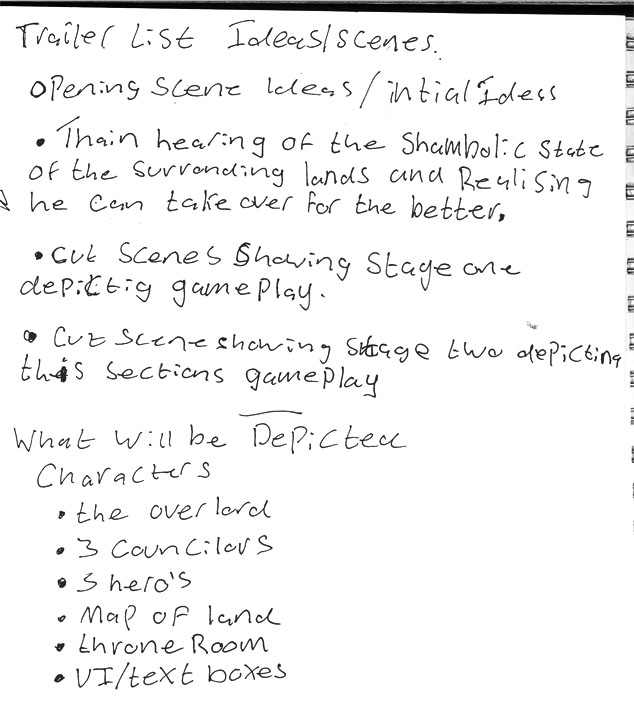 Trailer List Ideas/scenes.
Opening Scene Ideas/intial Idess
• Thain hearing of the Shambolic State
of the surronding lands and Realising
he can take over for the better.
• Cut Scenes Showing Stage one
depictig gameplay.
• Cut Scene showing stage two depicting
this sections gameplay
What will be Depicted
Characters
• the overlord
• 3 Councilors
• 3 hero's
• Map of land
• throne Room
• UI/text boxes